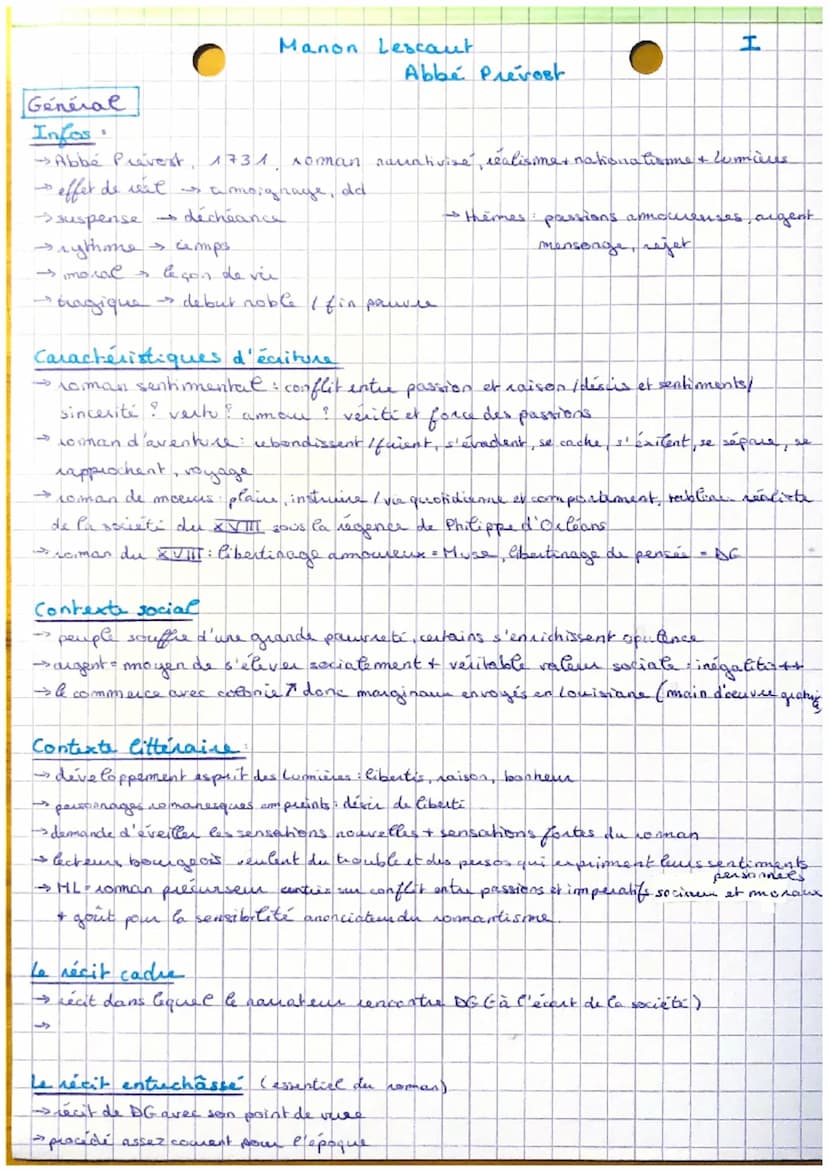 Manon Lescaut I
Abbé Prévost
Général
Infos :
→ Abbé Prévost, 1731, roman narrativisé, réalisme + nationalisme + Lumières
→ effet de réel → témoignage, dd
→ suspense → déchéance
→ thèmes : passions amoureuses, argent
mensonge, rejet
→ rythme → temps
→ moral → leçon de vie
→ tragique → debut noble / fin pauvre
Caractéristiques d'écriture
→ roman sentimental : conflit entre passion et raison / désirs et sentiments /
sincérité ? vertu ? amour ? vérité et force des passions
→ roman d'aventure : rebondissent / fuient, s'évadent, se cache, s'éxilent, se sépare, se
rapprochent, voyage
→ roman de moeurs : plaire, instruire / vie quotidienne et comportement, réaliste
de la société du XVIII sous la régence de Philippe d'Orléans
→ roman du XVIII : libertinage amoureux = , libertinage de pensée = DG
Contexte social
→ peuple souffre d'une grande pauvreté, certains s'enrichissent opulence
→ argent = moyen de s'élever socialement + véritable valeur sociale : inégalités ++
→ le commerce avec colonie ↗ donc marginaux envoyés en Louisiane (main d'oeuvre
Contexte littéraire :
→ développement esprit des Lumières : libertés, raison, bonheur
→ personnages romanesques empreints : désir de liberté
→ demande d'éveiller les sensations nouvelles + sensations fortes du roman
→ lecteurs bourgeois veulent du trouble et des persos qui expriment leurs sentiments
personnels
→ ML = roman précurseur centrés sur conflit entre passions et imperatifs sociaux et moraux
+ goût pour la sensibilité anonciateur du romantisme.
Le récit cadre
→ récit dans lequel le narrateur rencontre DG (à l'écart de la société)
→
Le récit entuchâssé (essentiel du roman)
→ récit de DG avec son point de vue
→ procédé assez courant pour l'époque